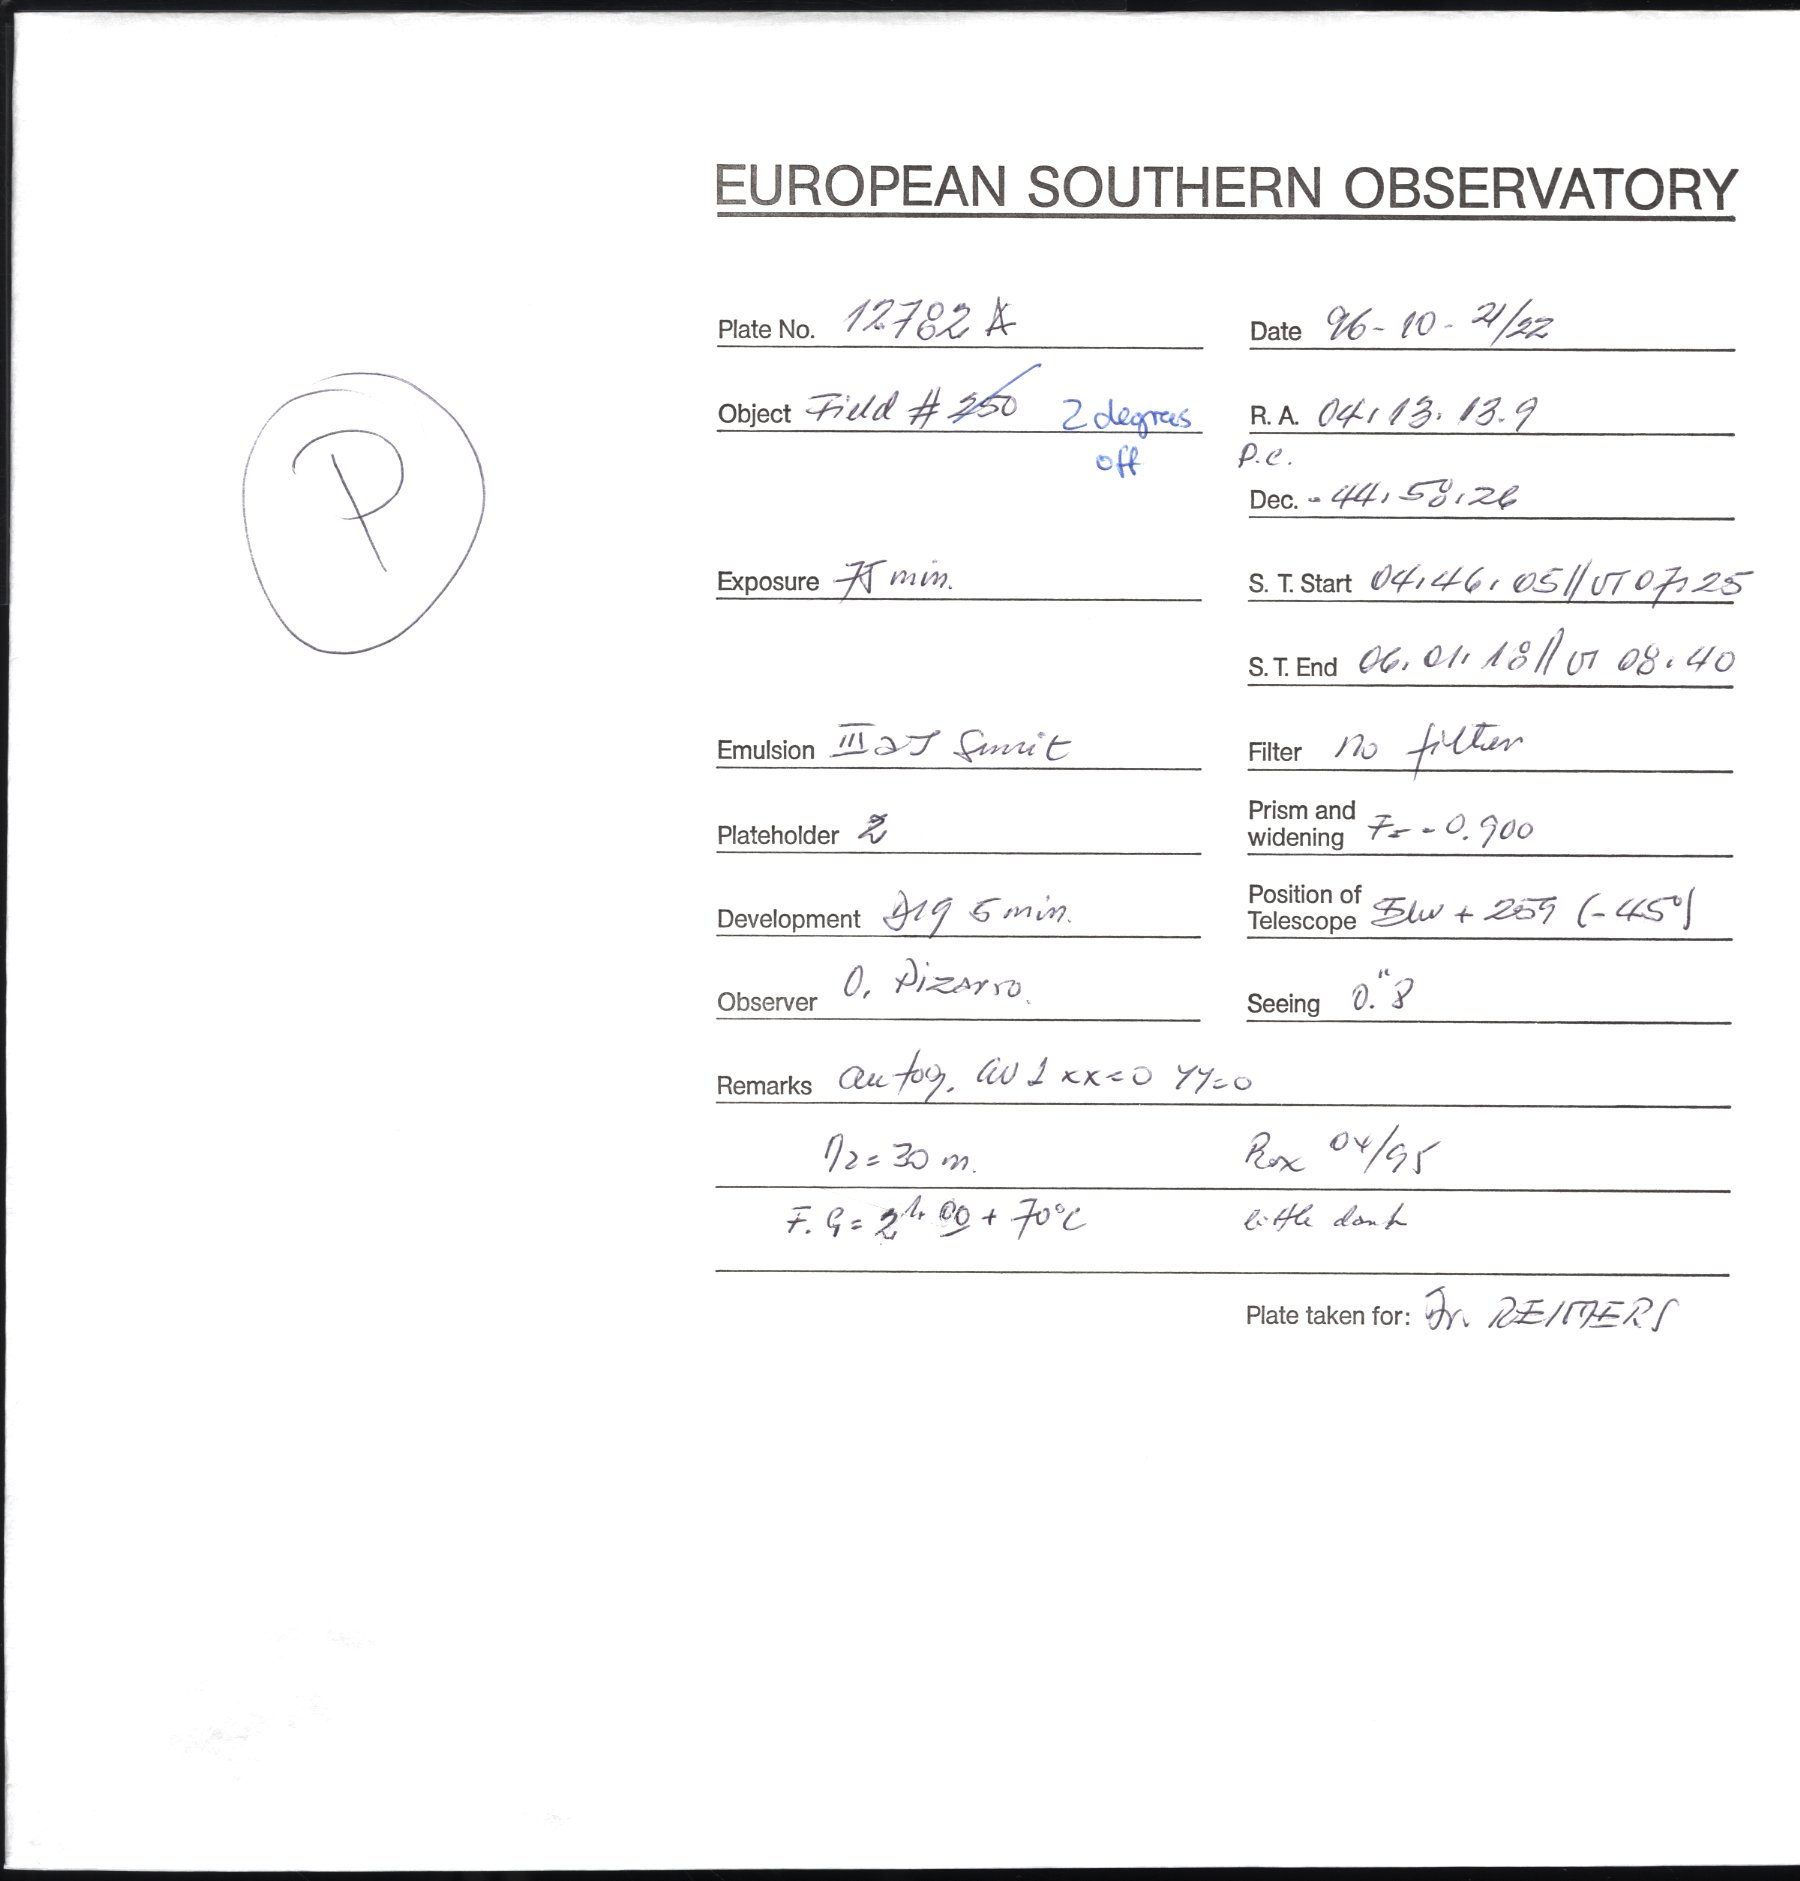 EUROPEAN SOUTHERN OBSERVATORY
Plate No. 12782 A
Date 96-10-21/22
Object Field # 250 2 degrees off
R. A. 04. 13. 13.9
P.C.
Dec. -44. 58. 26
P
Exposure 75 min.
S. T. Start 04. 46. 05 // UT 07. 25
S. T. End 06. 01. 18 // UT 08. 40
Emulsion III aJ
Filter no filter
Plateholder 2
Prism and widening F = -0.900
Development D19 5 min.
Position of Telescope + 259 (-45°)
Observer O. Pizarro.
Seeing 0."8
Remarks autog. xx=0 YY=0
= 30 m. 04/95
F. G = 2h. 00 + 70°C little dark
Plate taken for: Dr. REIMERS